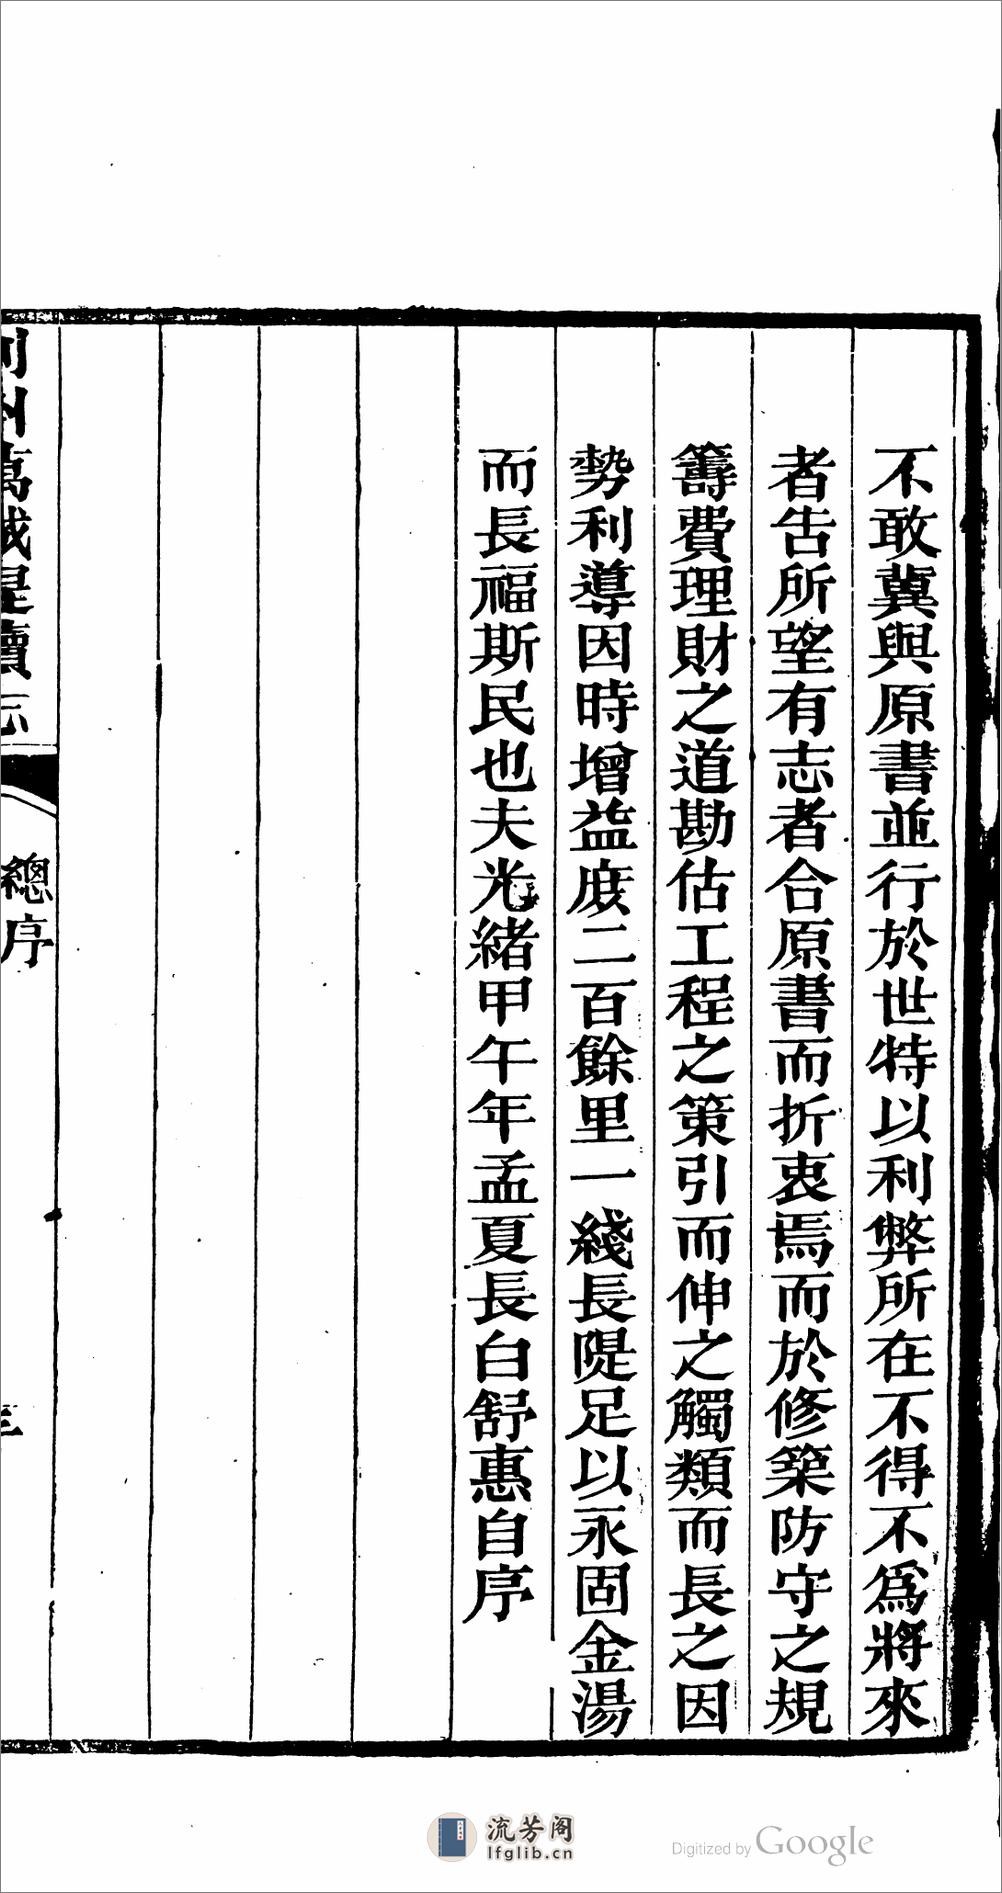 不敢冀與原書並行於世特以利弊所在不得不爲將來
者告所望有志者合原書而折衷焉而於修築防守之規
籌費理財之道勘估工程之策引而伸之觸類而長之因
勢利導因時增益庶二百餘里一綫長隄足以永固金湯
而長福斯民也夫光緒甲午年孟夏長白舒惠自序
荆州萬城隄續志
總序
流芳阁
lfglib.cn
Digitized by Google